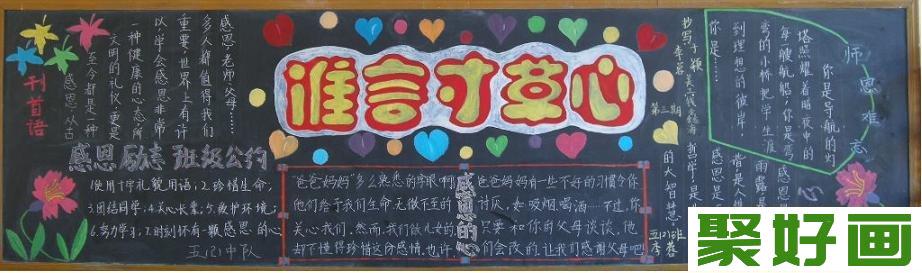 刊首语
感恩老师父母……
多么都值得我们
重要，世界上有许
以，学会感恩非常
一种健康的心态，所
文明的礼仪，更是
至今都是一种
感恩从古
谁言寸草心
感恩励志 班级公约
使用十字礼貌用语，2.珍惜生命，
3.团结同学，4.关心长辈，5.爱护环境；
6.努力学习，7.时刻怀有一颗感恩的心
五(2)中队
感恩的心
“爸爸妈妈”多么熟悉的字眼啊！
他们给予我们生命，无微不至的
关心我们，然而，我们做儿女的
却不懂得珍惜这份感情，也许，
爸爸妈妈有一些不好的习惯令你
讨厌，如吸烟、喝酒……不过，你
只要和你的父母谈谈，他
们会改的，让我们感谢父母吧
第三期
师恩难忘
你是导航的灯
塔照耀着暗夜中的
每一艘航船；你是弯
弯的小桥把学生渡
到理想的彼岸
你是……
感恩是
的大智慧
五(2)班
聚好画